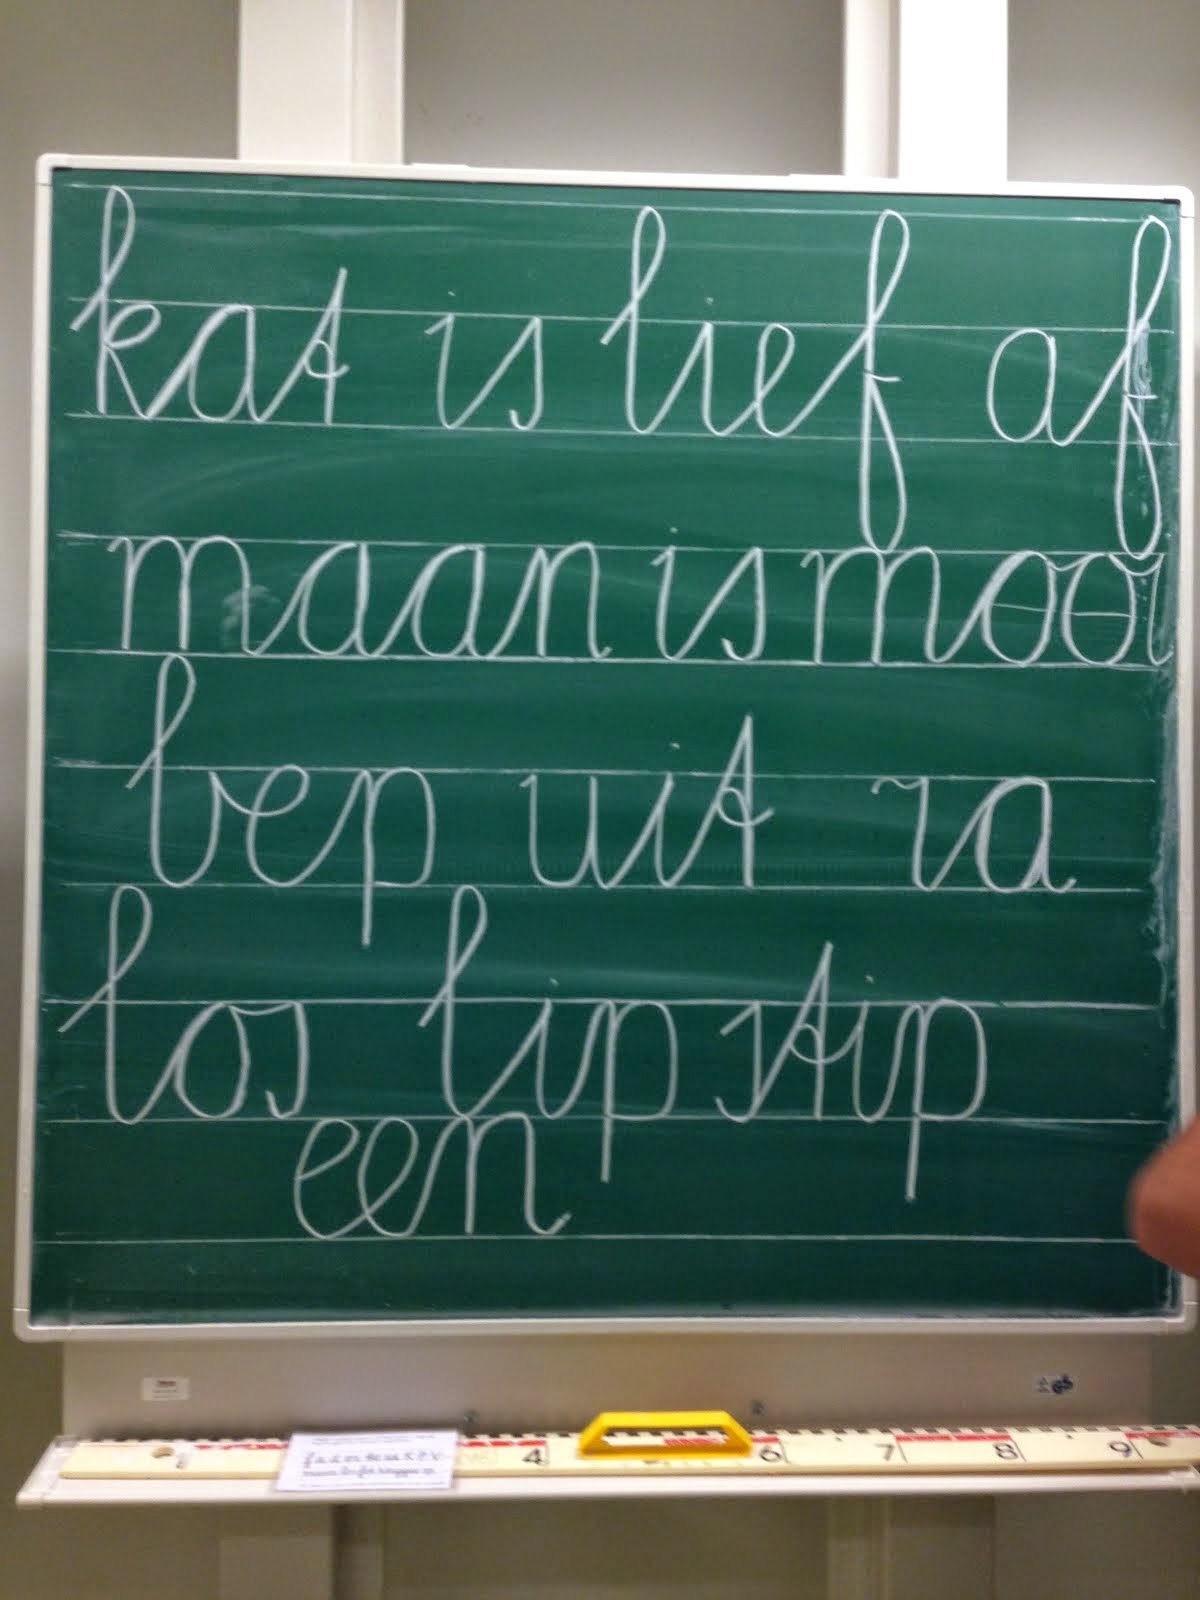 kat is lief af
maan is mooi
bep uit ra
los lip stip
een
4 6 7 8 9